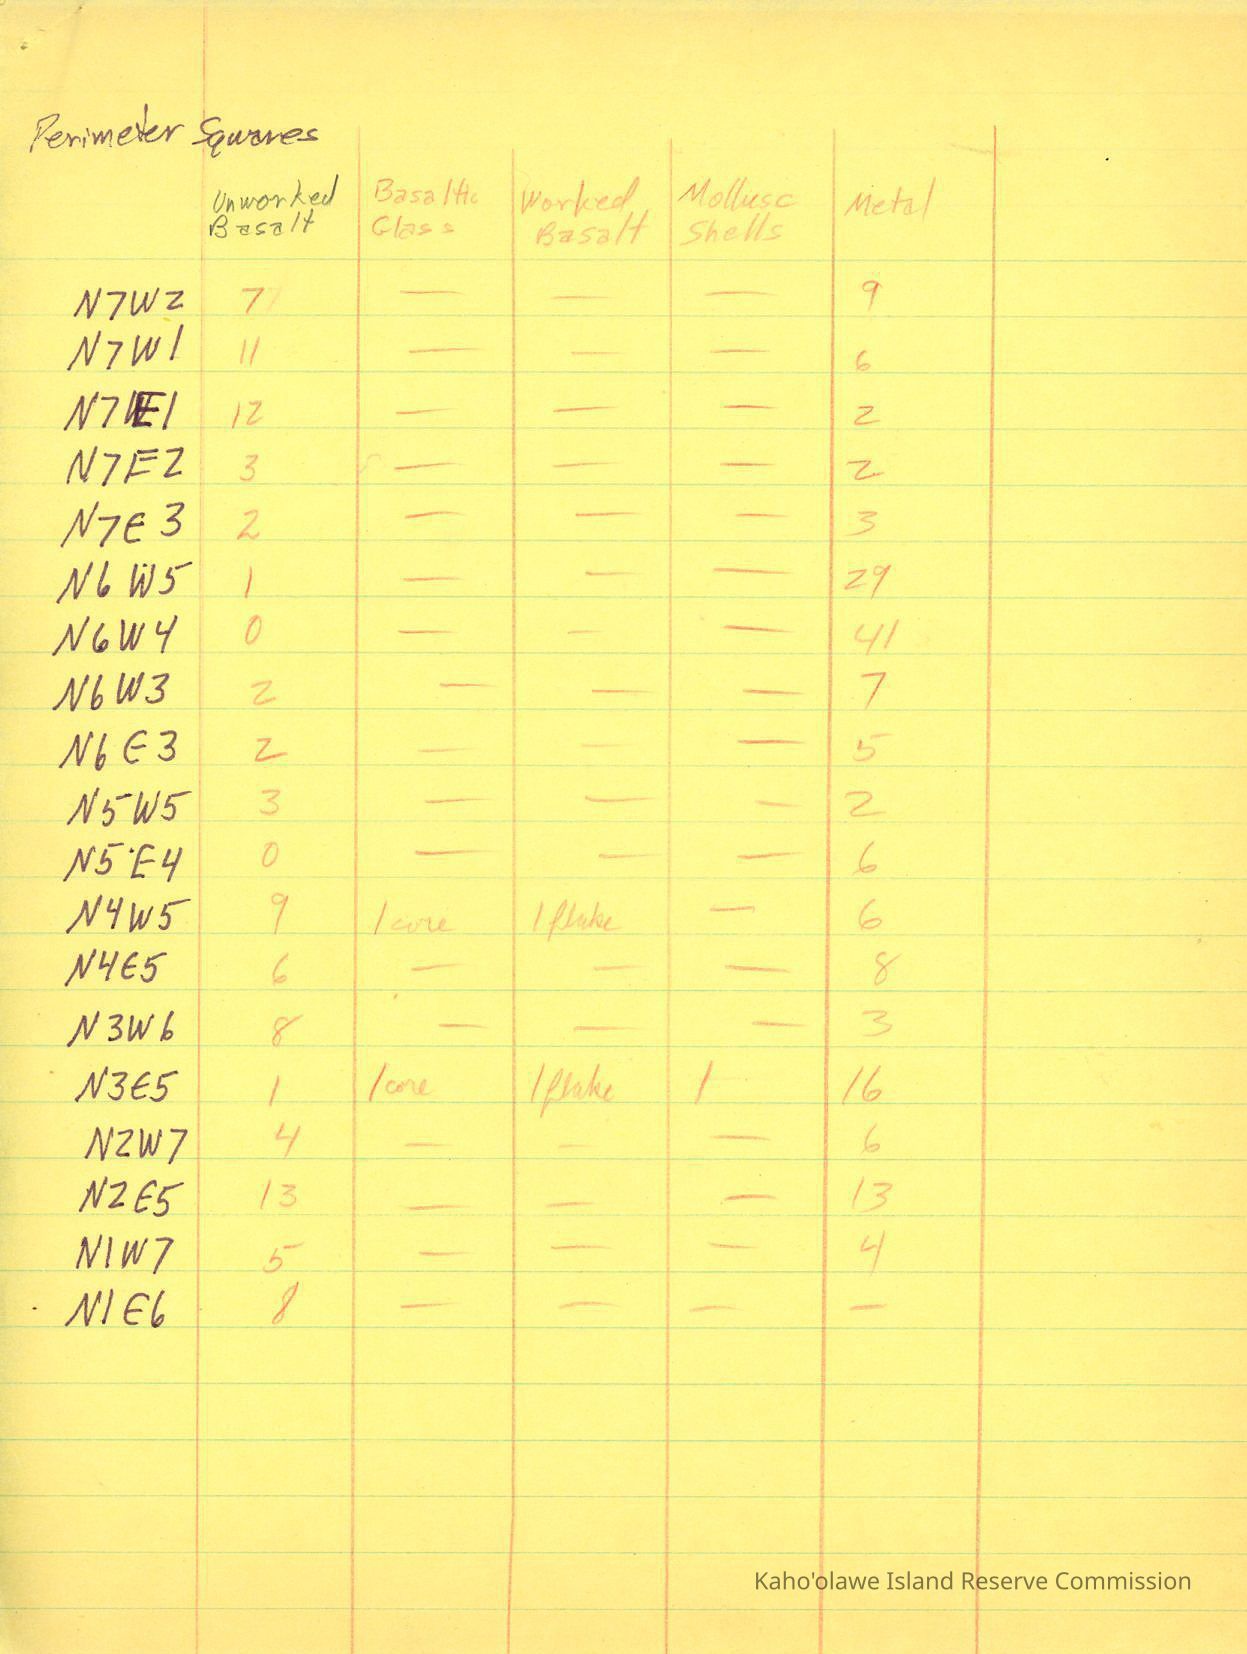 Perimeter Squares
Unworked Basalt | Basaltic Glass | Worked Basalt | Mollusc Shells | Metal
N7W2 7 — — — 9
N7W1 11 — — — 6
N7E1 12 — — — 2
N7E2 3 — — — 2
N7E3 2 — — — 3
N6W5 1 — — — 29
N6W4 0 — — — 41
N6W3 2 — — — 7
N6E3 2 — — — 5
N5W5 3 — — — 2
N5E4 0 — — — 6
N4W5 9 1 core 1 flake — 6
N4E5 6 — — — 8
N3W6 8 — — — 3
N3E5 1 1 core 1 flake 1 16
N2W7 4 — — — 6
N2E5 13 — — — 13
N1W7 5 — — — 4
N1E6 8 — — — —
Kaho'olawe Island Reserve Commission